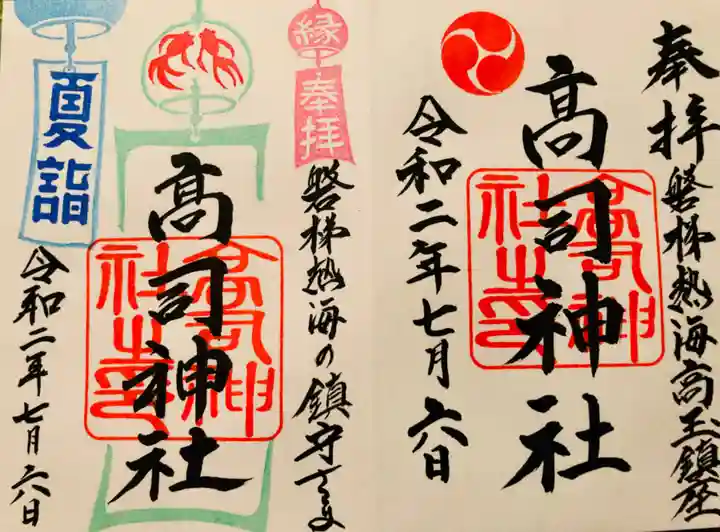 奉拝
磐梯熱海高玉鎮座
髙司神社
令和二年七月六日
縁
奉拝
磐梯熱海の鎮守さま
髙司神社
夏詣
令和二年七月六日